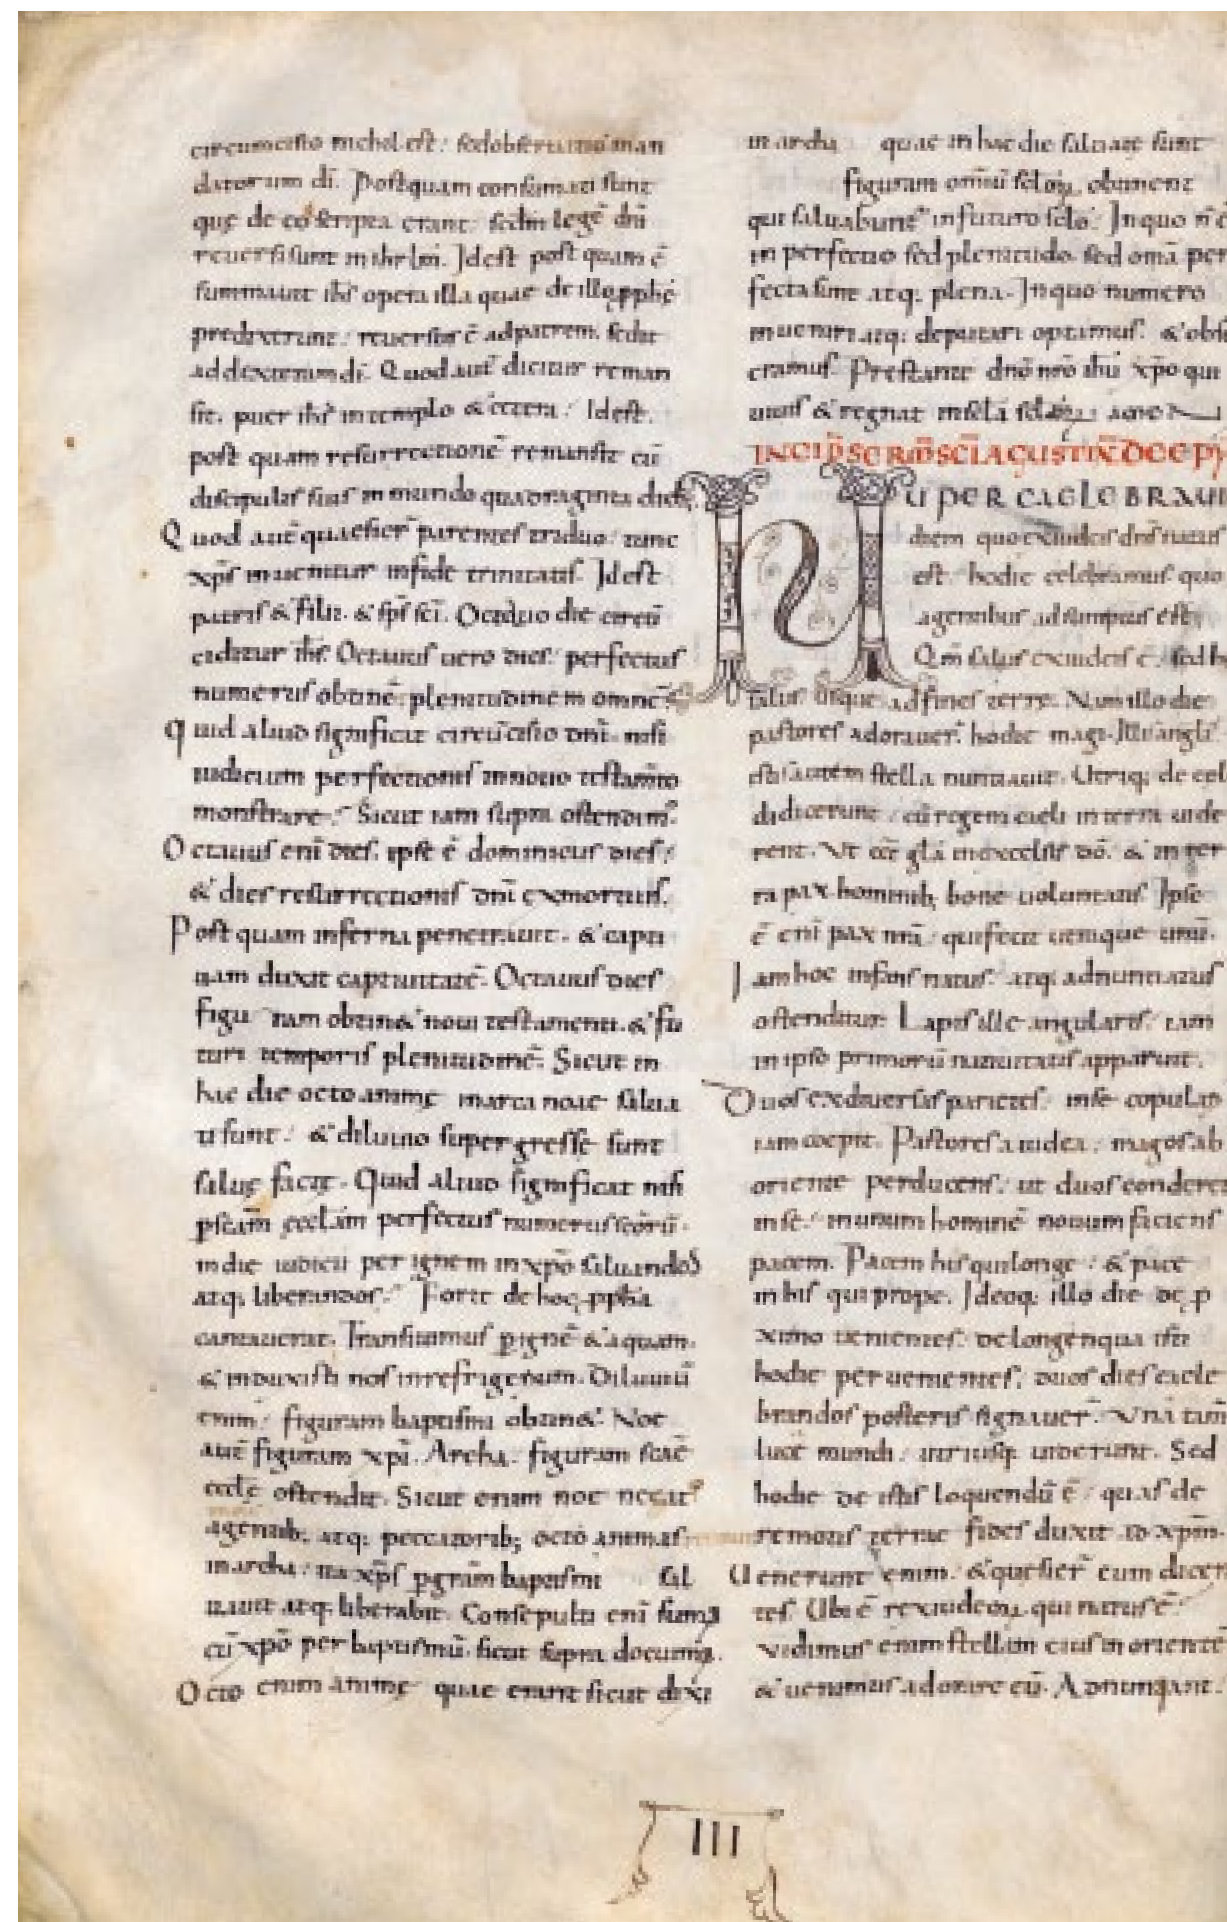 circumcisio nichil est: sed obseruatio man
datorum dī. Postquam consumati sunt
quę de eo scripta erant: scdm̄ legē dn̄i
reuersi sunt in ihrlm̄. Idest post quam c̄
summauit ihs̄ opera illa quae de illo ꝓphę
predixerunt: reuersus ē ad patrem. sedit
ad dexteram dī. Quod aut̄ dicitur reman
sit. puer ihs̄ in templo & cetera: Idest.
post quam resurrectionē remansit cū
discipulis suis in mundo quadraginta dieb;
Quod aut̄ quaesier̄ parentes triduo: tunc
xp̄s inuenitur in fide trinitatis. Idest
patris & filii. & sp̄s sc̄i. Octauo die circū
ciditur ihs̄. Octauus uero dies: perfectus
numerus obtinē: plenitudinem omnē
Quid aliud significat circūcisio dn̄i. nisi
iudicium perfectionis in nouo testam̄to
monstrare: Sicut iam supra ostendim;
Octauus enī dies. ipse ē dominicus dies:
& dies resurrectionis dn̄i ex mortuis.
Post quam inferna penetrauit. & capti
uam duxit captiuitatē. Octauus dies
figu ram obtin& noui testamenti. & fu
turi temporis plenitudinē: Sicut in
hac die octo animę in arca noae salua
ti sunt: & diluuio supergresse sunt
saluę facte. Quid aliud significat nisi
ꝑ sc̄am ęccl̄am perfectus numerus sc̄orū.
in die iudicii per ignem in xp̄o saluandos
atq; liberandos: Forte de hoc ꝓph̄a
cantauerat. Transiuimus ꝑ ignē & aquam.
& induxisti nos in refrigerium. Diluuiū
enim: figuram baptismi obtin&. Noe
aut̄ figuram xp̄i. Archa: figuram sc̄ae
eccle ostendit. Sicut enim noe
agentib; atq; peccatorib; octo animas
in archa: ita xp̄s ꝑ gr̄am baptismi sal
uauit atq; liberabit. Consepulti enī sum;
cū xp̄o per baptismū. sicut supra docuim;.
Octo enim animę quae erant sicut dixi
in archa quae in hac die saluate sunt
figuram omniū sc̄loꝝ. obtinent
qui saluabunt̄ in futuro sc̄lo: In quo n̄ ē
in perfectio sed plenitudo. sed om̄a per
fecta sunt atq; plena. In quo numero
inueniri atq; deputari optamus. & obse
cramus. Prestante dn̄o nr̄o ihū xp̄o qui
uiuis & regnat in sc̄la sc̄loꝝ: amen
INCIP̄ SERM̄ SC̄I AGUSTIN̄ DE EPY
NUPER CAELEBRAUI
diem quo ex iudeis dn̄s natus
est: hodie celebramus quo
a gentibus adsumptus est:
Qm̄ salus ex iudeis ē: sed h
salus usque ad fines terrę. Nam illo die
pastores adorauer̄. hodie magi. Illis angli.
istis autem stella nuntiauit. Utriq; de cel
didicerunt: cū regem caeli in terra uide
rent. Ut ēe gl̄a in excelsis dō. & in ter
ra pax hominib; bone uoluntatis. Ipse
ē enī pax nr̄a: qui fecit utraque unū.
Iam hoc infans natus: atq; adnuntiatus
ostenditur. Lapis ille angularis: iam
in ipso primorū natiuitatis apparuit.
Duos ex diuersis parietes: in se copulare
iam coepit. Pastores a iudea: magos ab
oriente perducens: ut duos conderet
in se: in unum hominē nouum faciens
pacem. Pacem his qui longe: & pace
in his qui prope. Ideoq; illo die de ꝓ
ximo uenientes: de longenqua isti
hodie peruenientes: duos dies caele
brandos posteris signauer̄. Unā tam̄
lucē mundi: utriusq; uiderunt. Sed
hodie de istis loquendū ē: quas de
remotis terrae fides duxit ad xp̄m.
Uenerunt enim: & quesier̄ eum dicen
tes: Ubi ē rex iudeoꝝ qui natus ē:
Vidimus enim stellam eius in orientē
& uenimus adorare eū. Adnuntiant:
III